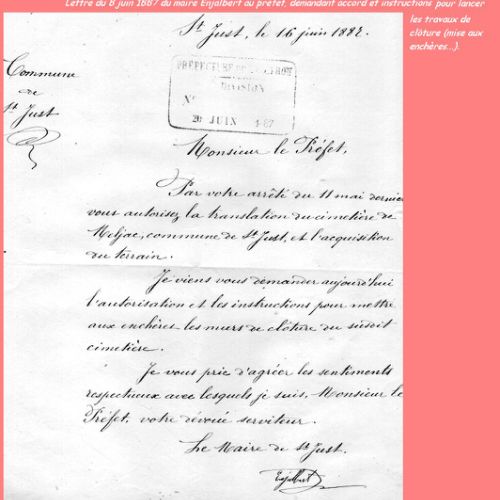 Lettre du 8 juin 1887 du maire Enjalbert au préfet, demandant accord et instructions pour lancer
les travaux de
clôture (mise aux
enchères...).
St Just, le 16 juin 1887.
Commune
de
St Just
PRÉFECTURE DE L'AVEYRON
DIVISION
N°
20 JUIN 1887
Monsieur le Préfet,
Par votre arrêté du 11 mai dernier
vous autorisez la translation du cimetière de
Meljac, commune de St Just, et l'acquisition
du terrain.
Je viens vous demander aujourd'hui
l'autorisation et les instructions pour mettre
aux enchères les murs de clôture du susdit
cimetière.
Je vous prie d'agréer les sentiments
respectueux avec lesquels je suis, Monsieur le
Préfet, votre dévoué serviteur.
Le Maire de St Just.
Enjalbert